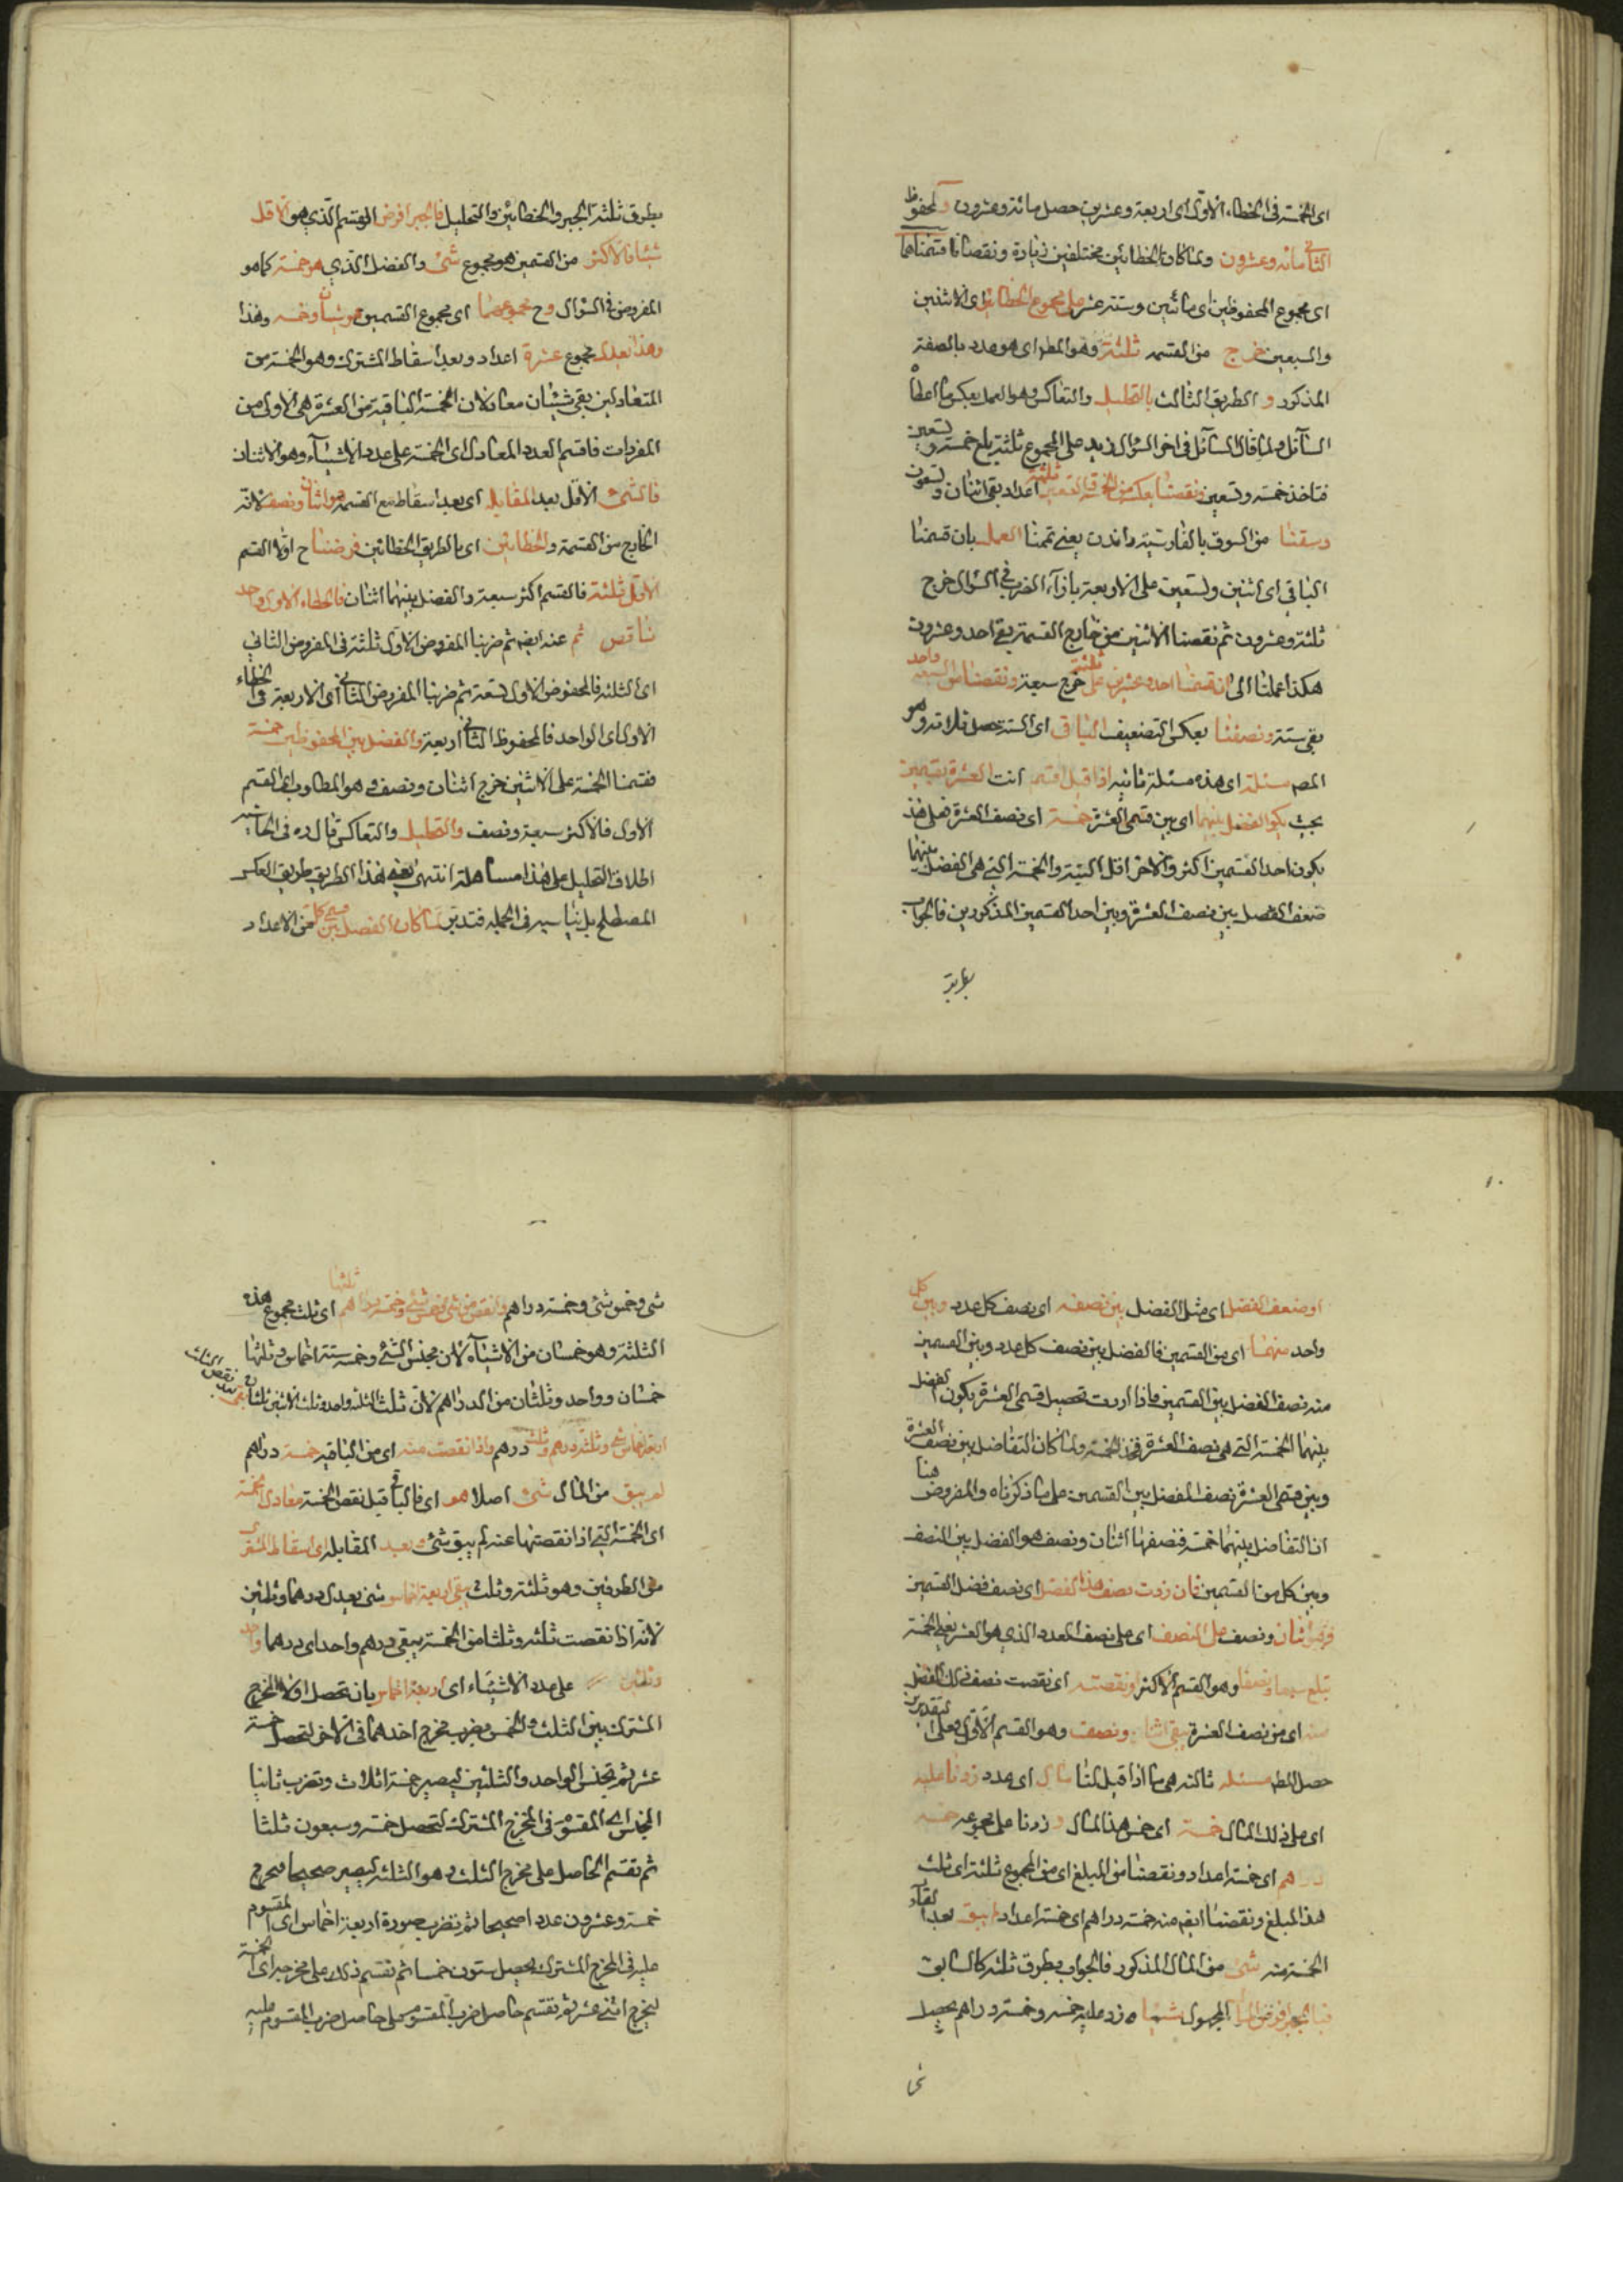 اى الخمسة فى الخطاء الاول اى اربعة وعشرين حصل مائة وعشرون والمحفوظ
الثانى مائة وعشرون ولما كان الخطائين مختلفين زيادة ونقصانا قسمناهما
اى مجموع المحفوظين اى مائتين وستة عشر على مجموع الخطائين اى الاثنين
والسبعين خرج من القسمة ثلثة وهو المط اى هو عدد بالصفة
المذكور و الطريق الثالث بالتحليل والتعاكس وهو العمل بعكس ما اعطاه
السآئل ولما قال السآئل فى اخر السؤال زيد على المجموع ثلثة بلغ خمسة وتسعين
فتاخذ خمسة وتسعين ونقصنا بعكس من الخمسة والتسعين ثلثة اعداد بقى اثنان وتسعون
وسقنا من السوق بالفارسية راندن يعنى تممنا العمل بان قسمنا
الباقى اى اثنين وتسعين على الاربعة بازآء الضرب فى السؤال خرج
ثلثة وعشرون ثم نقصنا الاثنين من خارج القسمة بقى احد وعشرون
هكذا عملنا الى ان قسمنا احد وعشرين على ثلثة خرج سبعة ونقصنا من السبعة واحد
بقى ستة ونصفنا بعكس التضعيف الباقى اى الستة حصل ثلاثة وهو
المط مسئلة اى هذه مسئلة ثانية اذا قيل اقسم انت العشرة بقسمين
بحيث يكون الفضل بينهما اى بين قسمى العشرة خمسة اى نصف العشرة فعلى هذ
يكون احد القسمين اكثر والاخر اقل البتة والخمسة التى هى الفضل بينهما
ضعف الفضل بين نصف العشرة وبين احد القسمين المذكورين فالجواب
بطرق ثلثة الجبر والخطائين والتحليل فالجبر افرض القسم الذى هو الاقل
شيئا فالاكثر من القسمين هو مجموع شئ والفضل الذى هو خمسة كما هو
المفروض فى السؤال وح مجموعهما اى مجموع القسمين هو شيئان وخمسة وهذا
وهذا يعدل مجموع عشرة اعداد وبعد اسقاط المشترك وهو الخمسة من
المتعادلين بقى شيئان معادلان الخمسة الباقية من العشرة هى الاولى من
المفردات فاقسم العدد المعادل اى الخمسة على عدد الاشيآء وهو الاثنان
فالشئ الاقل بعد المقابلة اى بعد اسقاط مع القسمة هو اثنان ونصف لانه
الخارج من القسمة والخطائين اى بالطريق الخطائين فرضنا ح اولا القسم
الاقل ثلثة فالقسم اكثر سبعة والفضل بينهما اثنان فالخطاء الاول واحد
ناقص ثم عنه ايضم ثم ضربنا المفروض الاول ثلثة فى المفروض الثانى
اى الثلثة فالمحفوض الاول تسعة ثم ضربنا المفروض الثانى اى الاربعة فى الخطاء
الاول اى الواحد فالمحفوظ الثانى اربعة والفضل بين المحفوظين خمسة
فقسمنا الخمسة على الاثنين خرج اثنان ونصف وهو المطلوب اى القسم
الاول فالاكثر سبعة ونصف والتحليل والتعاكس قال ره فى الحاشية
اطلاق التحليل على هذا مساهلة انتهى يعنى هذا الطريق طريق العكس
المصطلح بل يناسبه فى الجملة فتدبر لما كان الفضل بين قسمى كل من الاعداد
او ضعف الفضل اى مثل الفضل بين نصفه اى نصف كل عدد وبين كل
واحد منهما اى من القسمين فالفضل بين نصف كل عدد وبين القسمين
منه نصف الفضل بين القسمين فاذا اردت تحصيل قسمى العشرة يكون الفضل
بينهما الخمسة التى هى نصف العشرة فخذ الخمسة ولما كان التفاضل بين نصف العشرة
وبين قسمى العشرة نصف الفضل بين القسمين على ما ذكرناه والمفروض هنا
ان التفاضل بينهما خمسة فنصفها اثنان ونصف هو الفضل بين النصف
وبين كل من القسمين فان زدت نصف هذا الفضل اى نصف فضل القسمين
وهو اثنان ونصف على النصف اى على نصف العدد الذى هو العشر يعنى الخمسة
تبلغ سبعا ونصفا وهو القسم الاكثر او نقصته اى نقصت نصف ذلك الفضل
منه اى من نصف العشرة يبقى اثنان ونصف وهو القسم الاقل وعلى التقديرين
حصل المط مسئلة ثالثة هى ما اذا قيل لنا مال اى عدد زدنا عليه
اى على ذلك المال خمسه اى خمس هذا المال و زدنا على مجموعه خمسه
دراهم اى خمسة اعداد ونقصنا من المبلغ اى من المجموع ثلثه اى ثلث
هذا المبلغ ونقصنا ايضم منه خمسة دراهم اى خمسة اعداد لم يبق بعد القآء
الخمسة منه شئ من المال المذكور فالجواب بطرق ثلثة كالسابق
فبالجبر افرض المال المجهول شيئا زد عليه خمسه وخمسة دراهم يحصل
شى
شى وخمس شئ وخمسة دراهم وانقص من شئ وخمس شئ وخمسة دراهم ثلثها اى ثلث مجموع هذه
الثلثة وهو خمسان من الاشيآء لان مجنس الشئ وخمسه ستة اخماس وثلثها
خمسان وواحد وثلثان من الدراهم لان ثلث الثلثة واحد وثلث الاثنين ثلثان يبقى بعد نقص الثلث
اربعة اخماس شئ وثلثة دراهم وثلث درهم واذا نقصت منه اى من الباقية خمسة دراهم
لم يبق من المال شئ اصلا هو اى فالباقى قبل نقص الخمسة معادل لخمسة
اى الخمسة التى اذا نقصتها عنه لم يبق شئ وبعد المقابلة اى اسقاط المشترك
من الطرفين وهو ثلثة وثلث يبقى اربعة اخماس شئ يعدل درهما وثلثين
لانه اذا نقصت ثلثه وثلثا من الخمسة يبقى درهم واحد اى درهما واحد
وثلثين على عدد الاشيآء اى اربعة اخماس بان تحصل اولا المخرج
المشترك بين الثلث والخمس بضرب مخرج احدهما فى الاخر لتحصل خمسة
عشر ثم تجنس الواحد والثلثين ليصير خمسة اثلاث وتضرب ثانيا
المجنس اى المقسوم فى المخرج المشترك لتحصل خمسة وسبعون ثلثا
ثم تقسم الحاصل على مخرج الثلث وهو الثلثة ليصير صحيحا فخرج
خمسة وعشرون عددا صحيحا ثم تضرب صورة اربعة اخماس اى المقسوم
عليه فى المخرج المشترك يحصل ستون خمسا ثم نقسم ذلك على مخرجه اى الخمسة
ليخرج اثنى عشر ثم تقسم حاصل ضرب المقسوم على حاصل ضرب المقسوم عليه